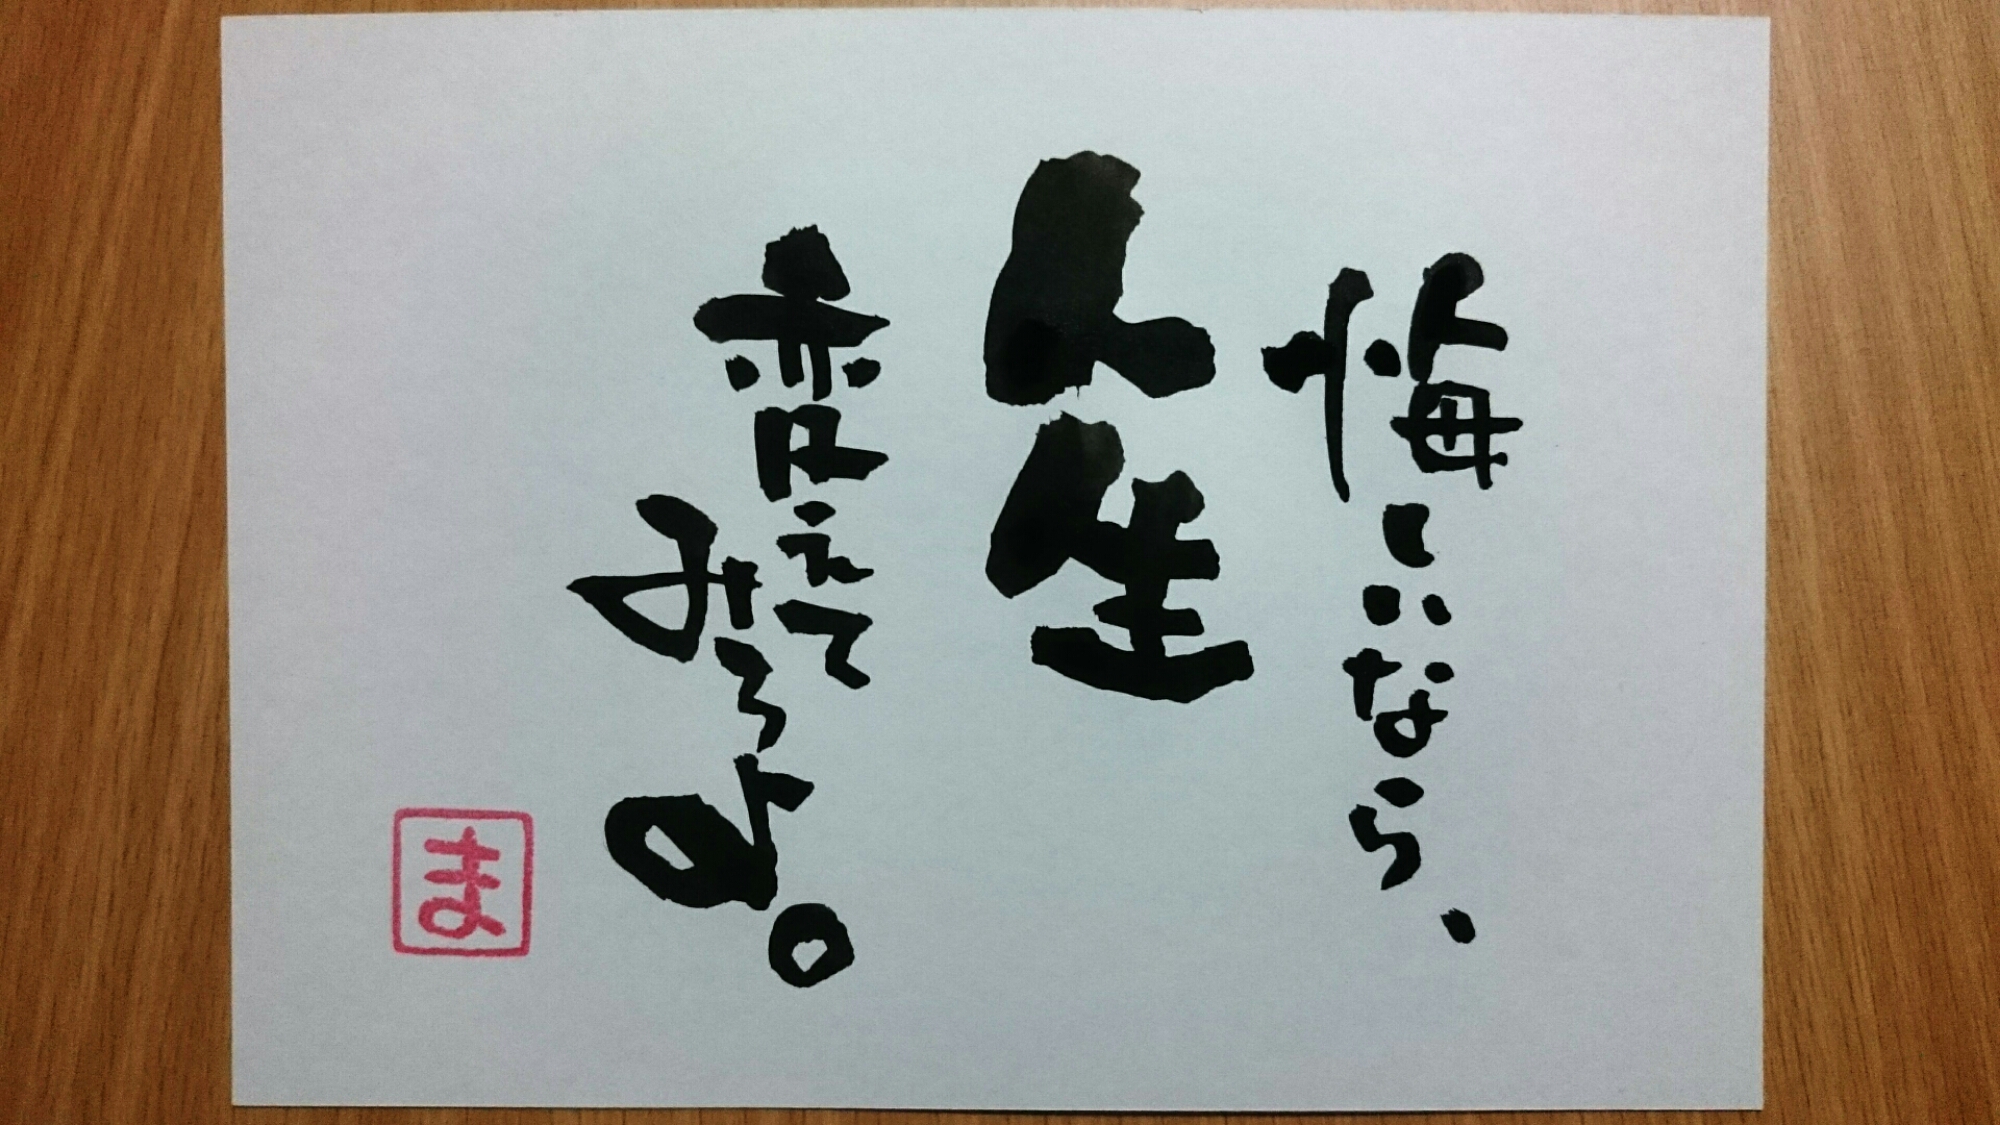 悔しいなら、
人生
変えて
みろよ。
ま